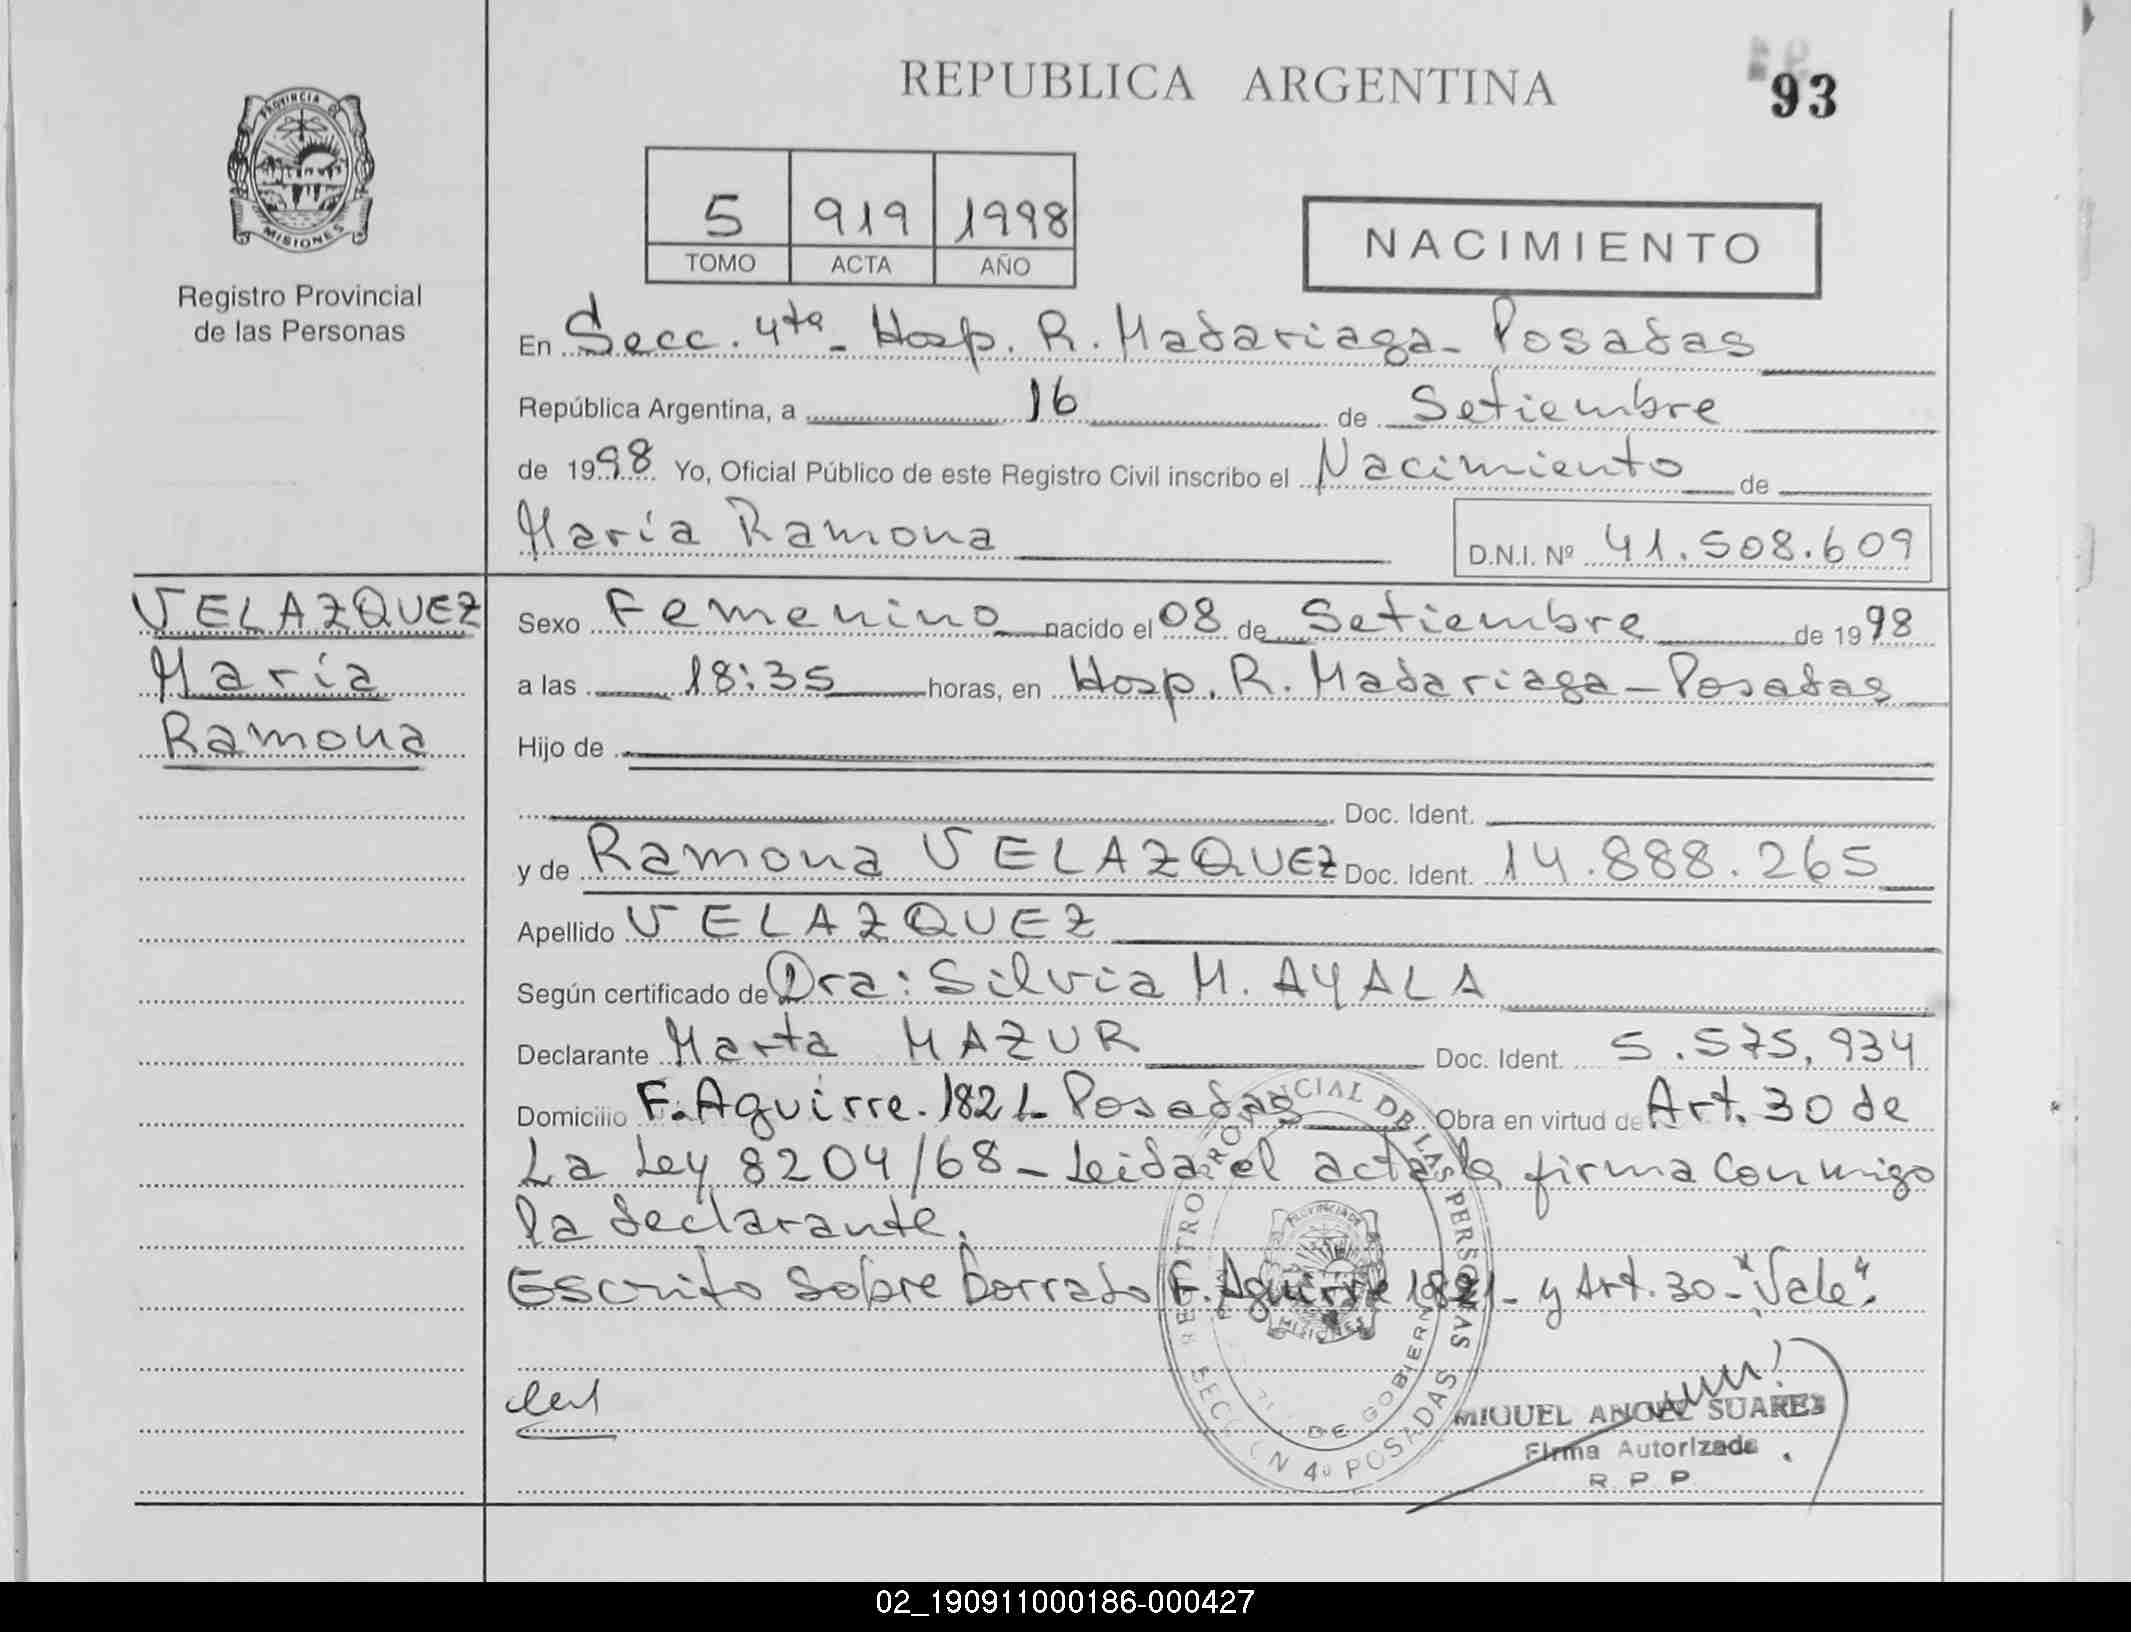 REPUBLICA ARGENTINA
93
PROVINCIA DE
MISIONES
Registro Provincial
de las Personas
5 919 1998
TOMO ACTA AÑO
NACIMIENTO
En Secc. 4ta - Hosp. R. Madariaga - Posadas
República Argentina, a 16 de Setiembre
de 1998 Yo, Oficial Público de este Registro Civil inscribo el Nacimiento de
María Ramona D.N.I. Nº 41.508.609
VELAZQUEZ
María
Ramona
Sexo Femenino nacido el 08 de Setiembre de 1998
a las 18:35 horas, en Hosp. R. Madariaga - Posadas
Hijo de
Doc. Ident.
y de Ramona VELAZQUEZ Doc. Ident. 14.888.265
Apellido VELAZQUEZ
Según certificado de Dra: Silvia M. AYALA
Declarante Marta MAZUR Doc. Ident. 5.575.934
Domicilio F. Aguirre. 1821 - Posadas Obra en virtud de Art. 30 de
La Ley 8204/68 - Leida el acta la firma conmigo
la declarante.
Escrito sobre borrado F. Aguirre 1821 - y Art. 30 - "Vale".
DE LAS PERSONAS
SECCION 4º POSADAS
DE GOBIERN
MISIONES
MIGUEL ANGEL SUAREZ
Firma Autorizada
R. P. P.
02_190911000186-000427